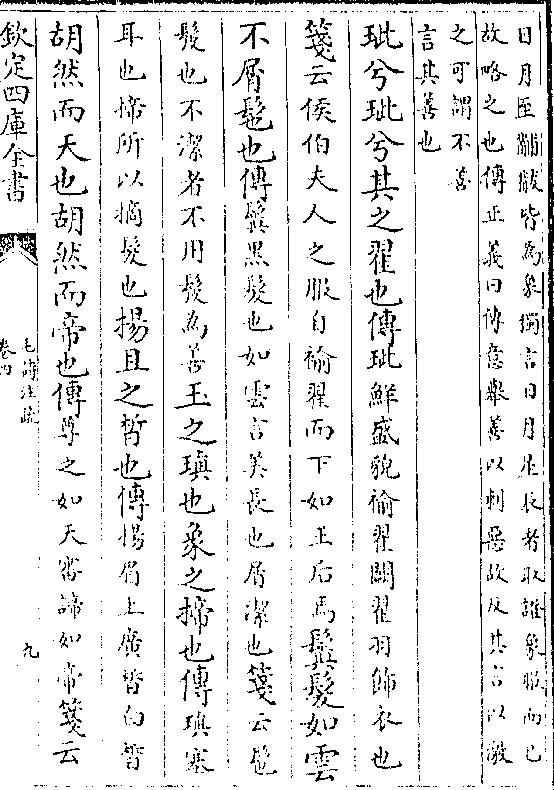 日月至黼黻皆為象獨言日月星辰者取證象服而已
故略之也傳正義曰傳意舉善以刺惡故反其言以激
之可謂不善
言其善也
玼兮玼兮其之翟也傳玼鮮盛貌褕翟闕翟羽飾衣也
箋云侯伯夫人之服自褕翟而下如王后焉鬒髮如雲
不屑髢也傳鬒黑髮也如雲言美長也屑潔也箋云髢
髲也不潔者不用髲為善玉之瑱也象之揥也傳瑱塞
耳也揥所以摘髮也揚且之皙也傳揚眉上廣皙白皙
胡然而天也胡然而帝也傳尊之如天審諦如帝箋云
欽定四庫全書
毛詩注疏
卷四
九